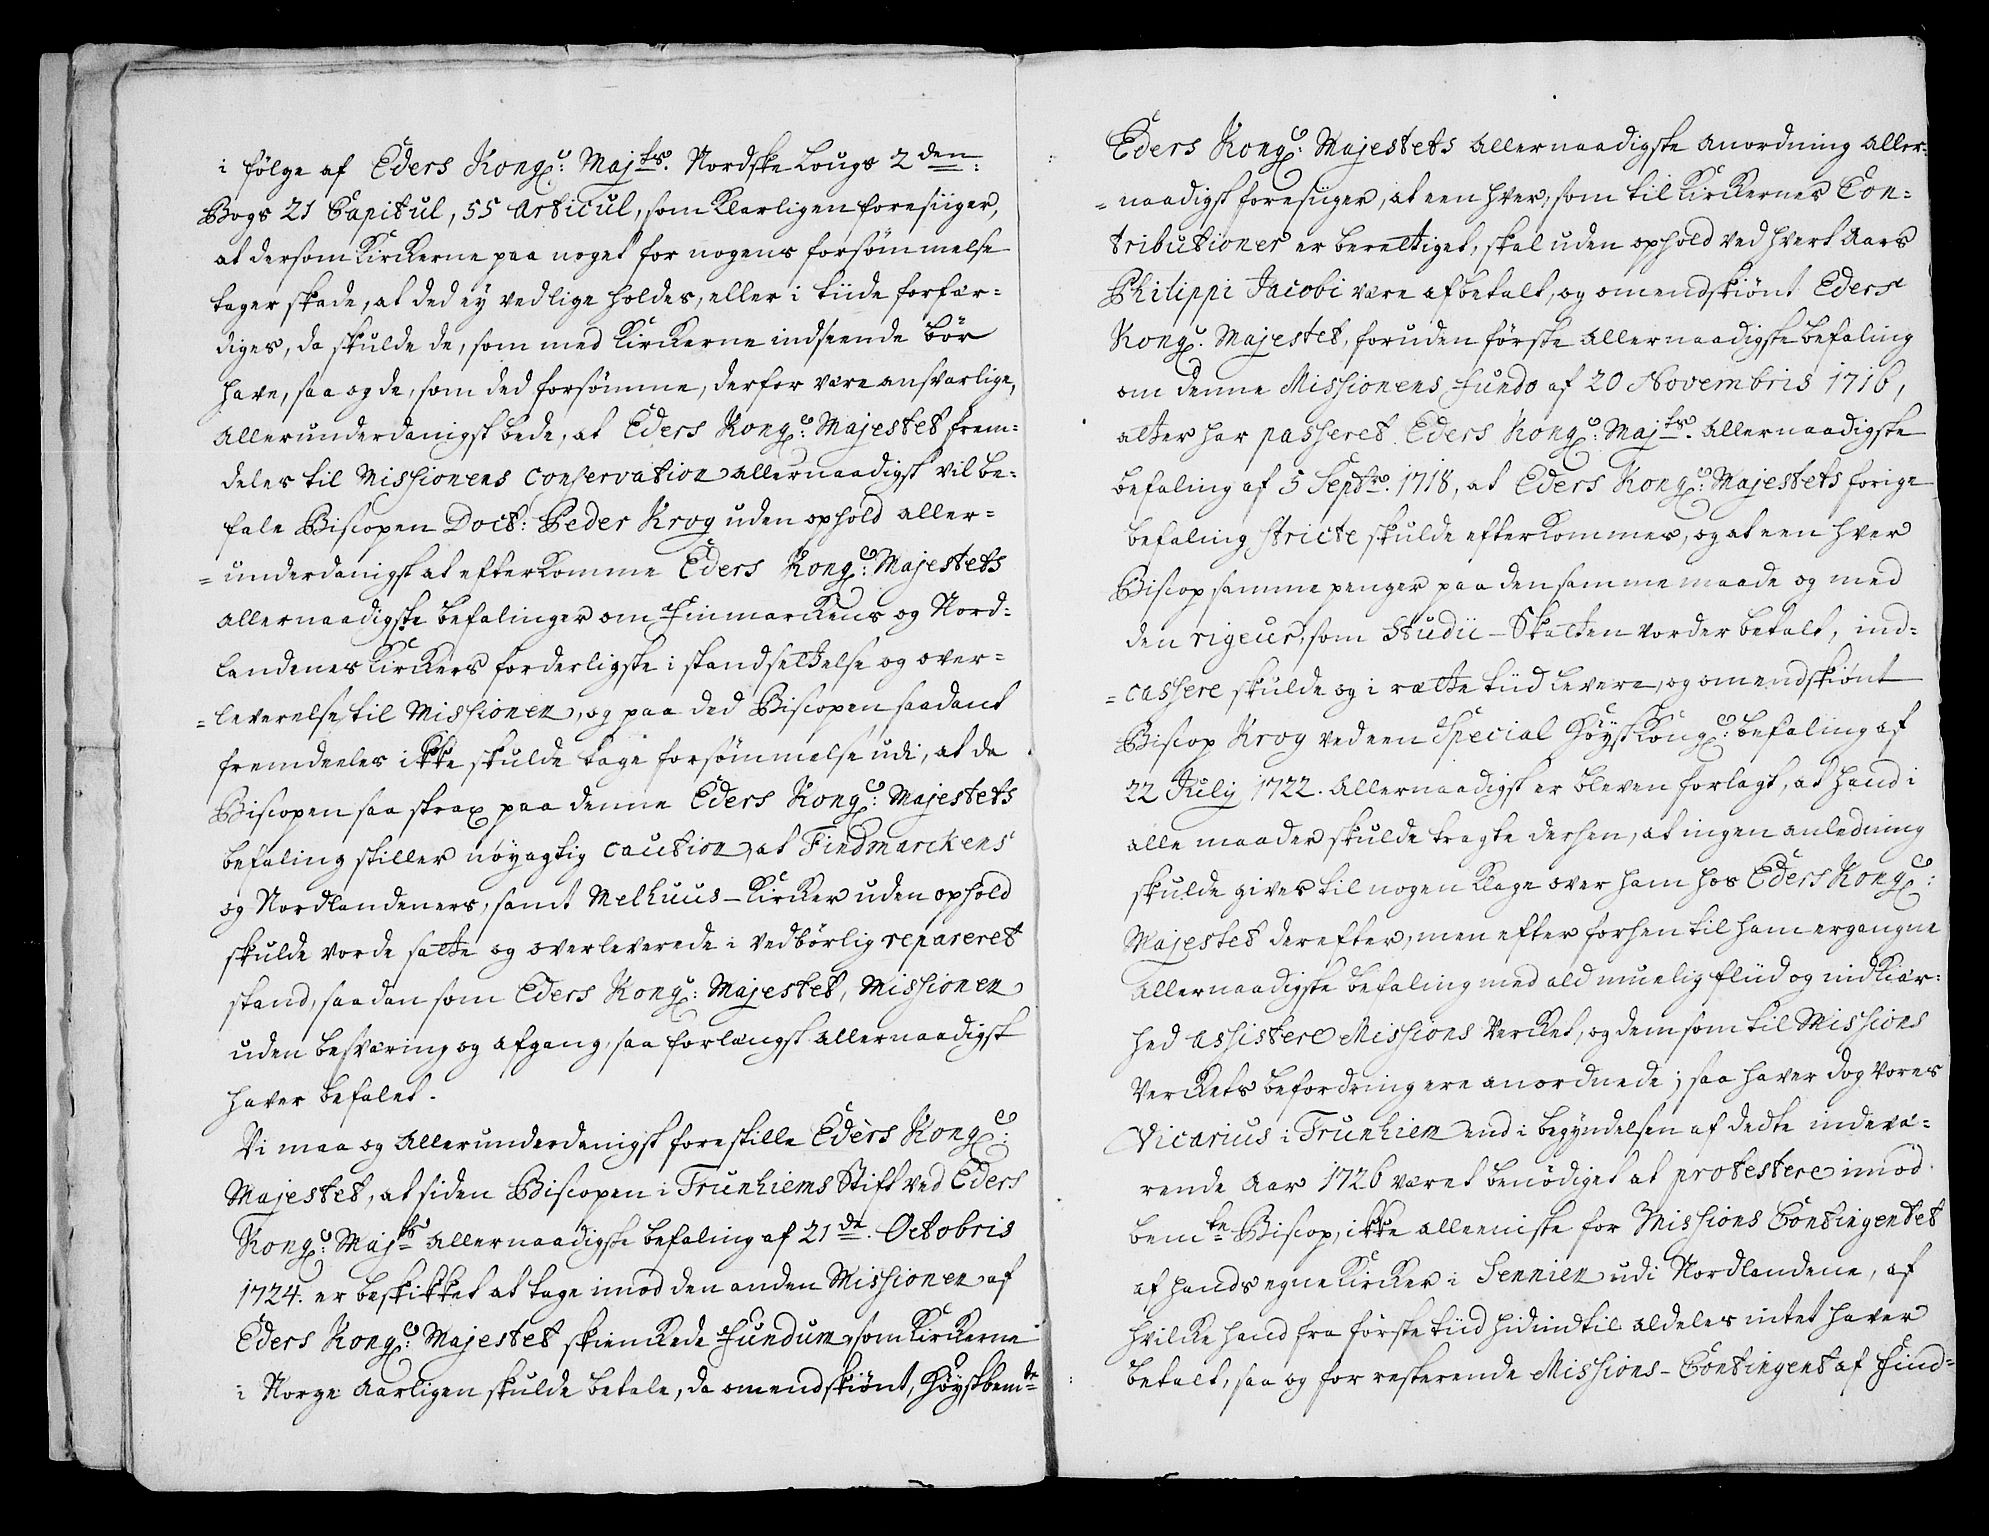 i følge af Eders Kong: Majts. Nordske Lougs 2den:
Bogs 21 Capitul, 55 Articul, som klarligen foresiiger,
at dersom Kirckerne paa noget for nogens forsømmelse
tager skade, at ded ey vedlige holdes, eller i tiide forfær-
diges, da skulde de, som med Kirckerne indseende bør
have, saa og de, som ded forsømme, derfor være ansvarlige,
Allerunderdanigst bede, at Eders Kong: Majestet frem-
deles til Missionens Conservation allernaadigst vil be-
fale Biscopen Doct: Peder Krog uden ophold aller-
=underdanigst at efterkomme Eders Kong: Majestets
allernaadigste befalinger om Finmarckens og Nord-
landenes Kirckers forderligste i stand settelse og over-
=leverelse til Missionen, og paa ded Biscopen saadant
fremdeeles ikke skulde tage forsømmelse udi, at da
Biscopen saa strax paa denne Eders Kong: Majestets
befaling stiller nøyagtig Caution, at Findmarckens
og Nordlandeners, samt Melhuus-Kircker uden ophold
skulde vorde satte og overleverede i vedbørlig repareret
stand, saadan som Eders Kong: Majestet, Missionen
uden besværing og afgang, saa forlængst allernaadigst
haver befalet.
Vi maa og Allerunderdanigst forestille Eders Kong:
Majestet, at siden Biscopen i Trunhiems Stift ved Eders
Kong: Majts Allernaadigste befaling af 21de. Octobris
1724. er beskikket at tage imod den anden Missionen af
Eders Kong: Majestet skienckede Fundum, som Kirckerne
i Norge Aarligen skulde betale, da omendskiønt, Høystbemte
Eders Kong: Majestets Allernaadigste Anordning Aller-
=naadigst foresiiger, at een hver, som til Kirckernes Con-
tributioner er berettiget, skal uden ophold ved hvert Aars
Philippi Jacobi være afbetalt, og omendskiønt Eders
Kong: Majestet, foruden første Allernaadigste befaling
om denne Missionens Fundo af 20 Novembris 1716,
atter har passeret Eders Kong: Majts. Allernaadigste
befaling af 5 Septbr. 1718, at Eders Kong: Majestets forige
befaling stricte skulde efterkommes, og at een hver
Biscop samme penger paa den samme maade og med
den rigeur, som Studii-Skatten vorder betalt, ind-
=cassere skulde og i rætte tiid levere, og omendskiønt
Biscop Krog ved een Special Høyst Kong: befaling af
22 July 1722. Allernaadigst er bleven forlagt, at hand i
alle maader skulde tragte derhen, at ingen anledning
skulde gives til nogen klage over ham hos Eders Kong:
Majestet derefter, men efter forhen til ham ergangne
Allernaadigste befaling med ald muelig fliid og nidkiær-
hed assistere Missions Vercket, og dem som til Missions
Verckets befordring ere anordnede; saa haver dog vores
Vicarius i Trunhiem end i begyndelsen af dedte indevæ-
rende Aar 1726 været benødiget at protestere imod
bemte Biscop, ikke alleeniste for Missions Contingentet
af hands egne Kircker i Sennien udi Nordlandene, af
hvilke hand fra første tiid hidindtil aldeles intet haver
betalt, saa og for resterende Missions-Contingent af Find-